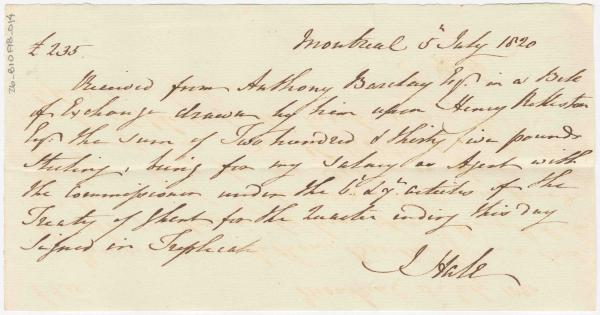 £ 235. Montreal 5th July 1820
Received from Anthony Barclay Esqr. in a Bill
of Exchange drawn by him upon Henry
Esqr. the sum of Two hundred & thirty five pounds
Sterling, being for my salary as Agent with
the Commissioner under the 6th & 7th articles of the
Treaty of Ghent for the Quarter ending this day
Signed in Triplicate
J Hale
26-810FTB-014